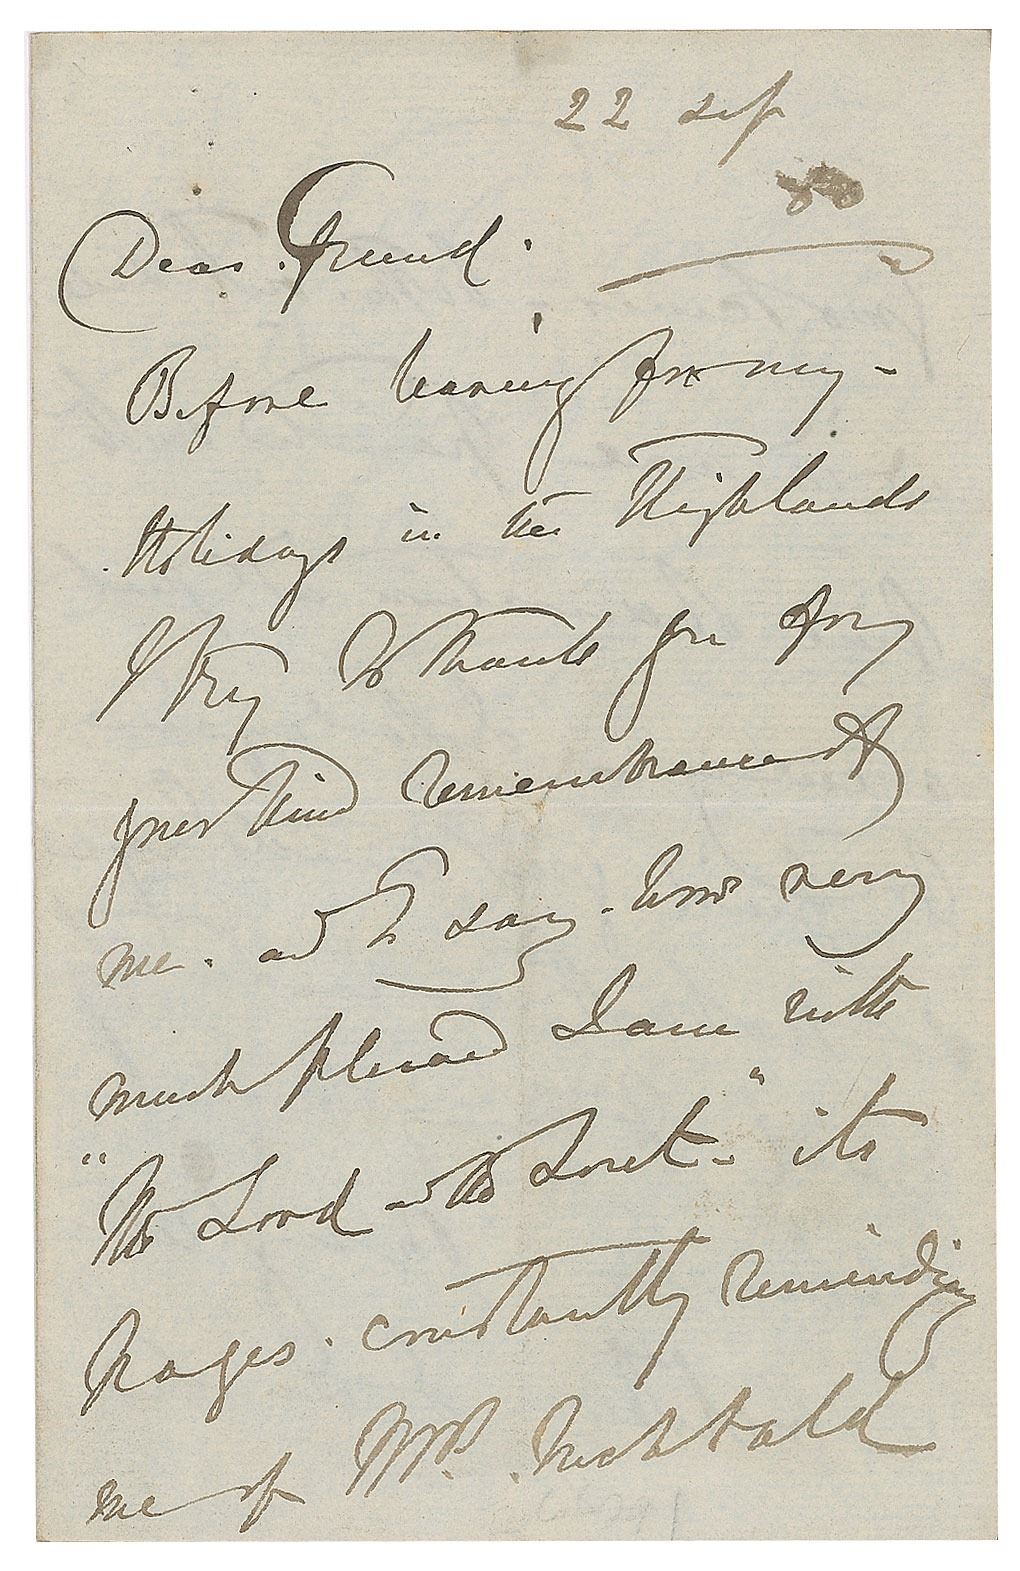 22 Sep
80
Dear friend.
Before leaving for my-
Holidays in the Highlands
I try to thank you for
your kind remembrance of
me. and to say. how very
much pleased I am with
"the Lord and the Loret-" its
Pages. constantly reminding
me of Mrs. Inchbald